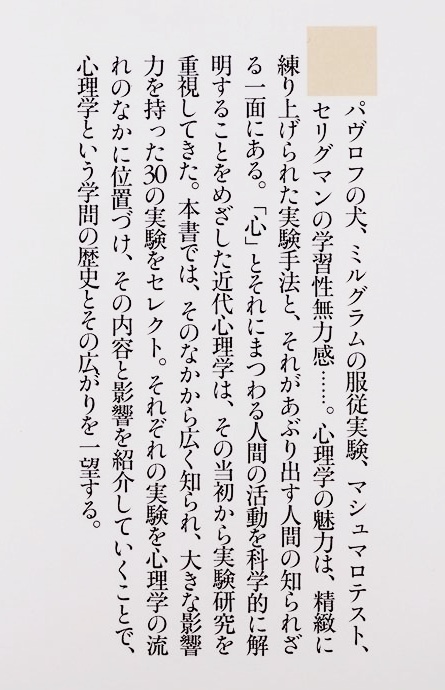 パヴロフの犬、ミルグラムの服従実験、マシュマロテスト、
セリグマンの学習性無力感……。心理学の魅力は、精緻に
練り上げられた実験手法と、それがあぶり出す人間の知られざ
る一面にある。「心」とそれにまつわる人間の活動を科学的に解
明することをめざした近代心理学は、その当初から実験研究を
重視してきた。本書では、そのなかから広く知られ、大きな影響
力を持った30の実験をセレクト。それぞれの実験を心理学の流
れのなかに位置づけ、その内容と影響を紹介していくことで、
心理学という学問の歴史とその広がりを一望する。